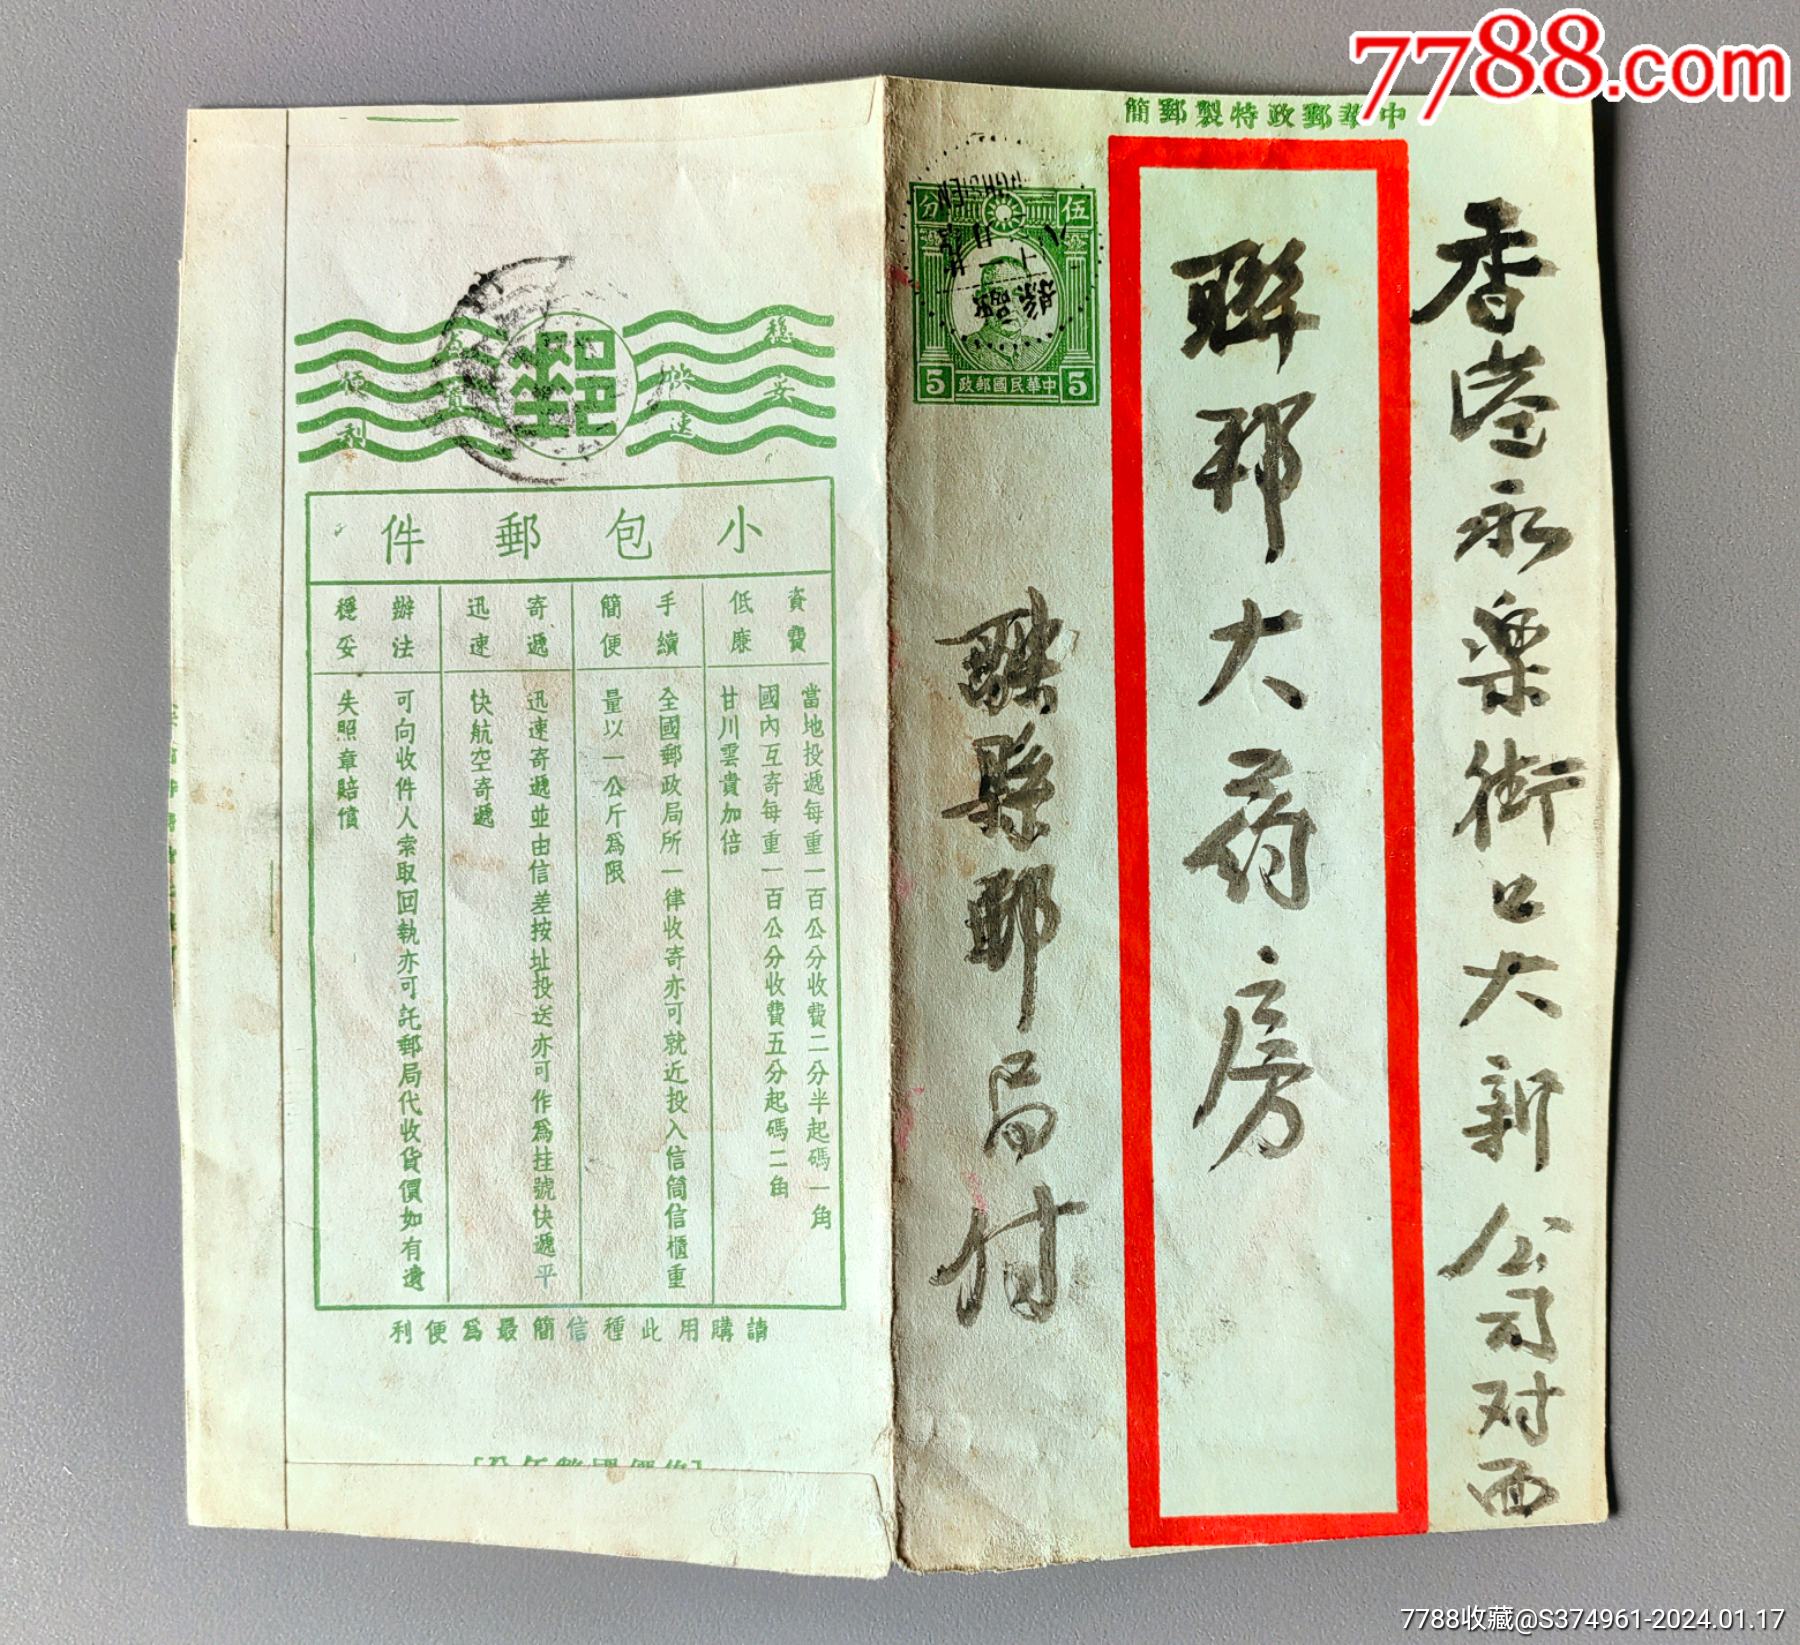 7788.com
中華郵政特製郵簡
香港永樂街口大新公司对西
聯邦大药房
伍分
5 中華民國郵政 5
縣郵局付
穩妥
快速
便利
郵
小包郵件
資費低廉
當地投遞每重一百公分收費二分半起碼一角
國內互寄每重一百公分收費五分起碼二角
甘川雲貴加倍
手續簡便
全國郵政局所一律收寄亦可就近投入信筒信櫃重
量以一公斤為限
寄遞迅速
迅速寄遞並由信差按址投送亦可作為挂號快遞平
快航空寄遞
辦法穩妥
可向收件人索取回執亦可託郵局代收貨價如有遺
失照章賠償
請購用此種信簡最為便利
7788收藏@S374961-2024.01.17